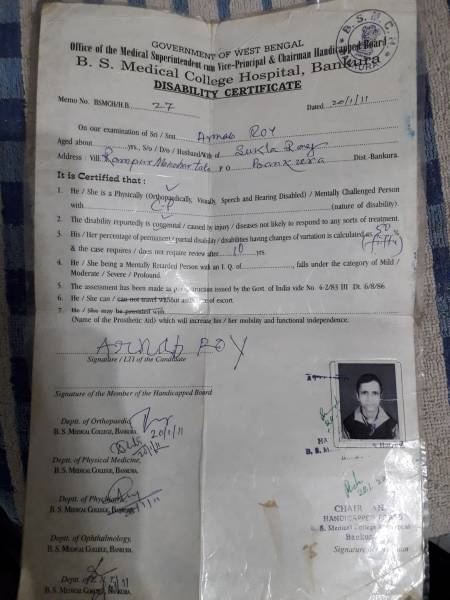 GOVERNMENT OF WEST BENGAL
Office of the Medical Superintendent cum Vice-Principal & Chairman Handicapped Board
B. S. Medical College Hospital, Bankura
DISABILITY CERTIFICATE
Memo No. BSMCH/H.B. 27 Dated 20/1/11
On our examination of Sri / Smt. Arnab ROY
Aged about yrs., S/o / D/o / Husband/Wife of Sukla Roy
Address : Vill. P O Bankura Dist.-Bankura.
It is Certified that :
1. He / She is a Physically (Orthopaedically, Visually, Speech and Hearing Disabled) / Mentally Challenged Person
with (nature of disability).
2. The disability reportedly is congenital / caused by injury / diseases not likely to respond to any sorts of treatment.
3. His / Her percentage of permanent / partial disability / disabilities having changes of variation is calculated as 50
& the case requires / does not require review after 10 yrs.
4. He / She being a Mentally Retarded Person with an I. Q. of , falls under the category of Mild /
Moderate / Severe / Profound.
5. The assessment has been made as per instruction issued by the Govt. of India vide No. 4-2/83 III Dt. 6/8/86.
6. He / She can / can not travel without assistance of escort.
7. He / She may be provided with
(Name of the Prosthetic Aid) which will increase his / her mobility and functional independence.
ARNAB ROY
Signature / LTI of the Candidate
Signature of the Member of the Handicapped Board
Deptt. of Orthopaedic,
B. S. MEDICAL COLLEGE, BANKURA. 20/1/11
Deptt. of Physical Medicine,
B. S. MEDICAL COLLEGE, BANKURA.
Deptt. of Psychiatric,
B. S. MEDICAL COLLEGE, BANKURA.
Deptt. of Ophthalmology,
B. S. MEDICAL COLLEGE, BANKURA.
Deptt. of
B. S. MEDICAL COLLEGE, BANKURA.
CHAIRMAN
HANDICAPPED BOARD
B. S. Medical College Hospital
Bankura
Signature of Chairman